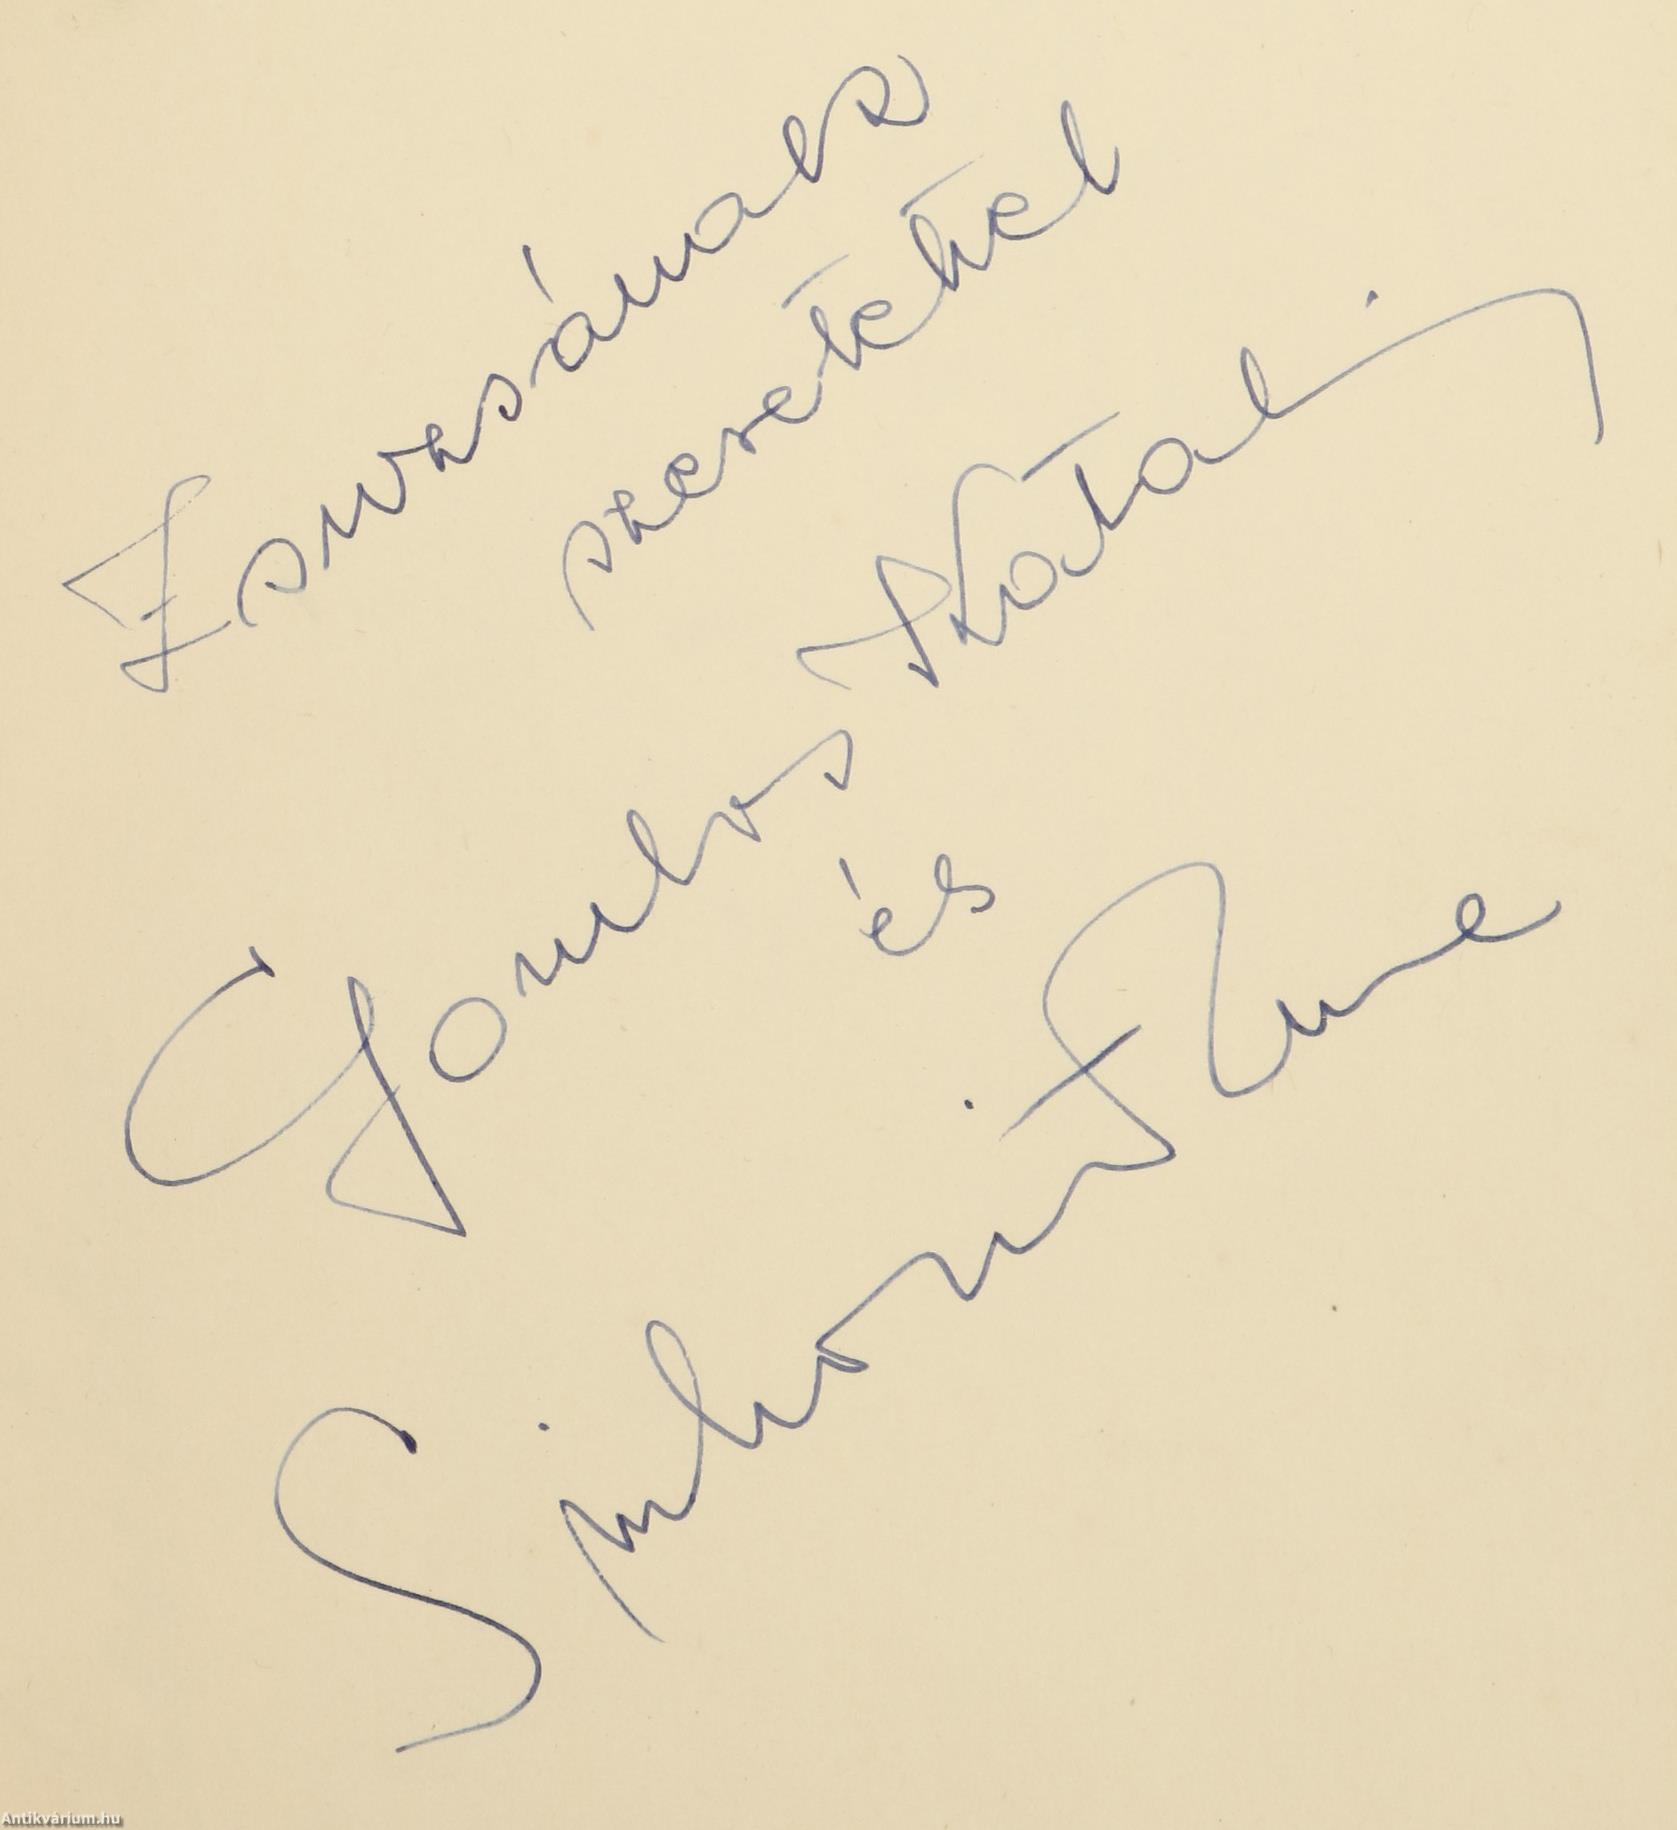 Zsuzsának
szeretettel
Gombos Katalin
és
Sinkovits Imre
Antikvárium.hu